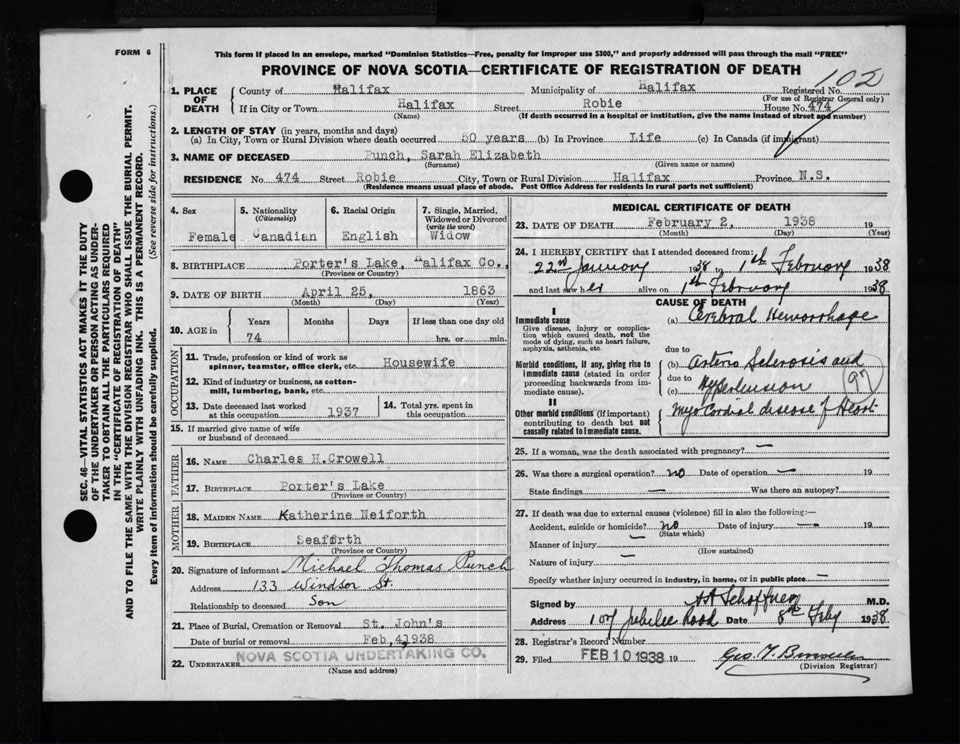 FORM 6
This form if placed in an envelope, marked "Dominion Statistics—Free, penalty for improper use $300," and properly addressed will pass through the mail "FREE"
PROVINCE OF NOVA SCOTIA—CERTIFICATE OF REGISTRATION OF DEATH
102
1. PLACE OF DEATH County of Halifax Municipality of Halifax Registered No.
(For use of Registrar General only)
If in City or Town Halifax Street Robie House No. 474
(Name) (If death occurred in a hospital or institution, give the name instead of street and number)
2. LENGTH OF STAY (in years, months and days)
(a) In City, Town or Rural Division where death occurred 50 years (b) In Province Life (c) In Canada (if immigrant)
3. NAME OF DECEASED Punch, Sarah Elizabeth
(Surname) (Given name or names)
RESIDENCE No. 474 Street Robie City, Town or Rural Division Halifax Province N.S.
(Residence means usual place of abode. Post Office Address for residents in rural parts not sufficient)
4. Sex 5. Nationality (Citizenship) 6. Racial Origin 7. Single, Married, Widowed or Divorced (write the word)
Female Canadian English Widow
8. BIRTHPLACE Porter's Lake, Halifax Co.,
(Province or Country)
9. DATE OF BIRTH April 25, 1863
(Month) (Day) (Year)
10. AGE in Years Months Days If less than one day old
74 hrs. or min.
OCCUPATION
11. Trade, profession or kind of work as spinner, teamster, office clerk, etc. Housewife
12. Kind of industry or business, as cotton-mill, lumbering, bank, etc.
13. Date deceased last worked at this occupation 1937 14. Total yrs. spent in this occupation
15. If married give name of wife or husband of deceased
FATHER
16. NAME Charles H.Crowell
17. BIRTHPLACE Porter's Lake
(Province or Country)
MOTHER
18. MAIDEN NAME Katherine Neiforth
19. BIRTHPLACE Seaforth
(Province or Country)
20. Signature of informant Michael Thomas Punch
Address 133 Windsor St.
Relationship to deceased Son
21. Place of Burial, Cremation or Removal St. John's
Date of burial or removal Feb, 4, 1938
22. UNDERTAKER NOVA SCOTIA UNDERTAKING CO.
(Name and address)
MEDICAL CERTIFICATE OF DEATH
23. DATE OF DEATH February 2, 1938 19
(Month) (Day) (Year)
24. I HEREBY CERTIFY that I attended deceased from:
22nd January 1938 to 1st February 1938
and last saw her alive on 1st February 1938
CAUSE OF DEATH
I
Immediate cause
Give disease, injury or complication which caused death, not the mode of dying, such as heart failure, asphyxia, asthenia, etc.
(a) Cerebral Hemorrhage
due to
Morbid conditions, if any, giving rise to immediate cause (stated in order proceeding backwards from immediate cause).
(b) Arterio Sclerosis and
due to
(c) Hypertension
97
II
Other morbid conditions (if important) contributing to death but not causally related to immediate cause.
Myo Cardial disease of Heart
25. If a woman, was the death associated with pregnancy? —
26. Was there a surgical operation? no Date of operation — 19
State findings — Was there an autopsy?
27. If death was due to external causes (violence) fill in also the following:—
Accident, suicide or homicide? no Date of injury — 19
(State which)
Manner of injury —
(How sustained)
Nature of injury —
Specify whether injury occurred in industry, in home, or in public place —
Signed by A A Schaffner M.D.
Address 107 Jubilee Road Date 8th Feby 1938
28. Registrar's Record Number
29. Filed FEB 10 1938 19 Geo. T.
(Division Registrar)
SEC. 46—VITAL STATISTICS ACT MAKES IT THE DUTY
OF THE UNDERTAKER OR PERSON ACTING AS UNDER-
TAKER TO OBTAIN ALL THE PARTICULARS REQUIRED
IN THE "CERTIFICATE OF REGISTRATION OF DEATH"
AND TO FILE THE SAME WITH THE DIVISION REGISTRAR WHO SHALL ISSUE THE BURIAL PERMIT.
WRITE PLAINLY WITH UNFADING INK. THIS IS A PERMANENT RECORD.
Every item of information should be carefully supplied. (See reverse side for instructions.)